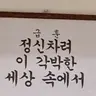 금준
정신차려
이 각박한
세상 속에서